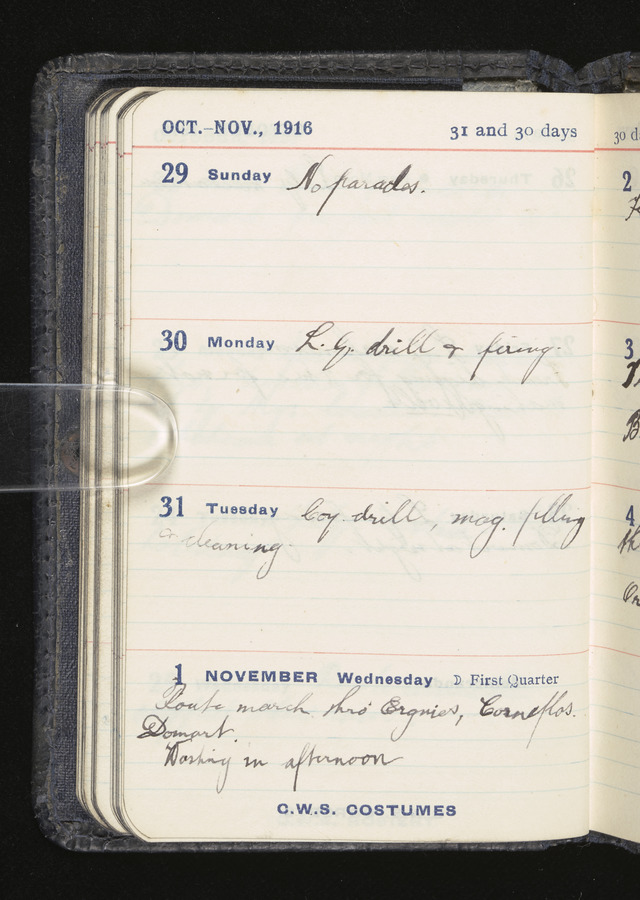 OCT.-NOV., 1916 31 and 30 days
29 Sunday No parades.
30 Monday L. G. drill & firing.
31 Tuesday Coy. drill, mag. filling
& cleaning.
1 NOVEMBER Wednesday D First Quarter
Route march thro' Ergnies, Corneflos.
Domart.
Washing in afternoon
C.W.S. COSTUMES
30 d
2
3
4